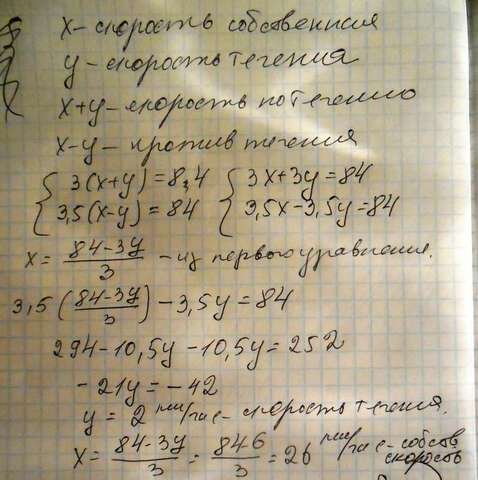 x – скорость собственная
y – скорость течения
x+y – скорость по течению
x-y – против течения
{ 3(x+y) = 8,4 { 3x+3y = 84
3,5(x-y) = 84 3,5x-3,5y = 84
x = (84-3y)/3 – из первого уравнения.
3,5((84-3y)/3) - 3,5y = 84
294-10,5y-10,5y = 252
-21y = -42
y = 2 км/час – скорость течения.
x = (84-3y)/3 = (846)/3 = 26 км/час – собств. скорость